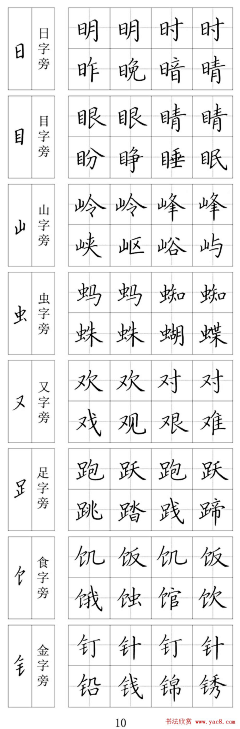 日 日字旁
明 明 时 时
昨 晚 暗 晴
目 目字旁
眼 眼 睛 睛
盼 睁 睡 眠
山 山字旁
岭 岭 峰 峰
峡 岖 峪 屿
虫 虫字旁
蚂 蚂 蜘 蜘
蛛 蛛 蝴 蝶
又 又字旁
欢 欢 对 对
戏 观 艰 难
𧾷 足字旁
跑 跃 跑 跃
跳 踏 践 蹄
饣 食字旁
饥 饭 饥 饭
饿 蚀 馆 饮
钅 金字旁
钉 针 钉 针
铅 钱 锦 锈
10
书法欣赏 www.yac8.com